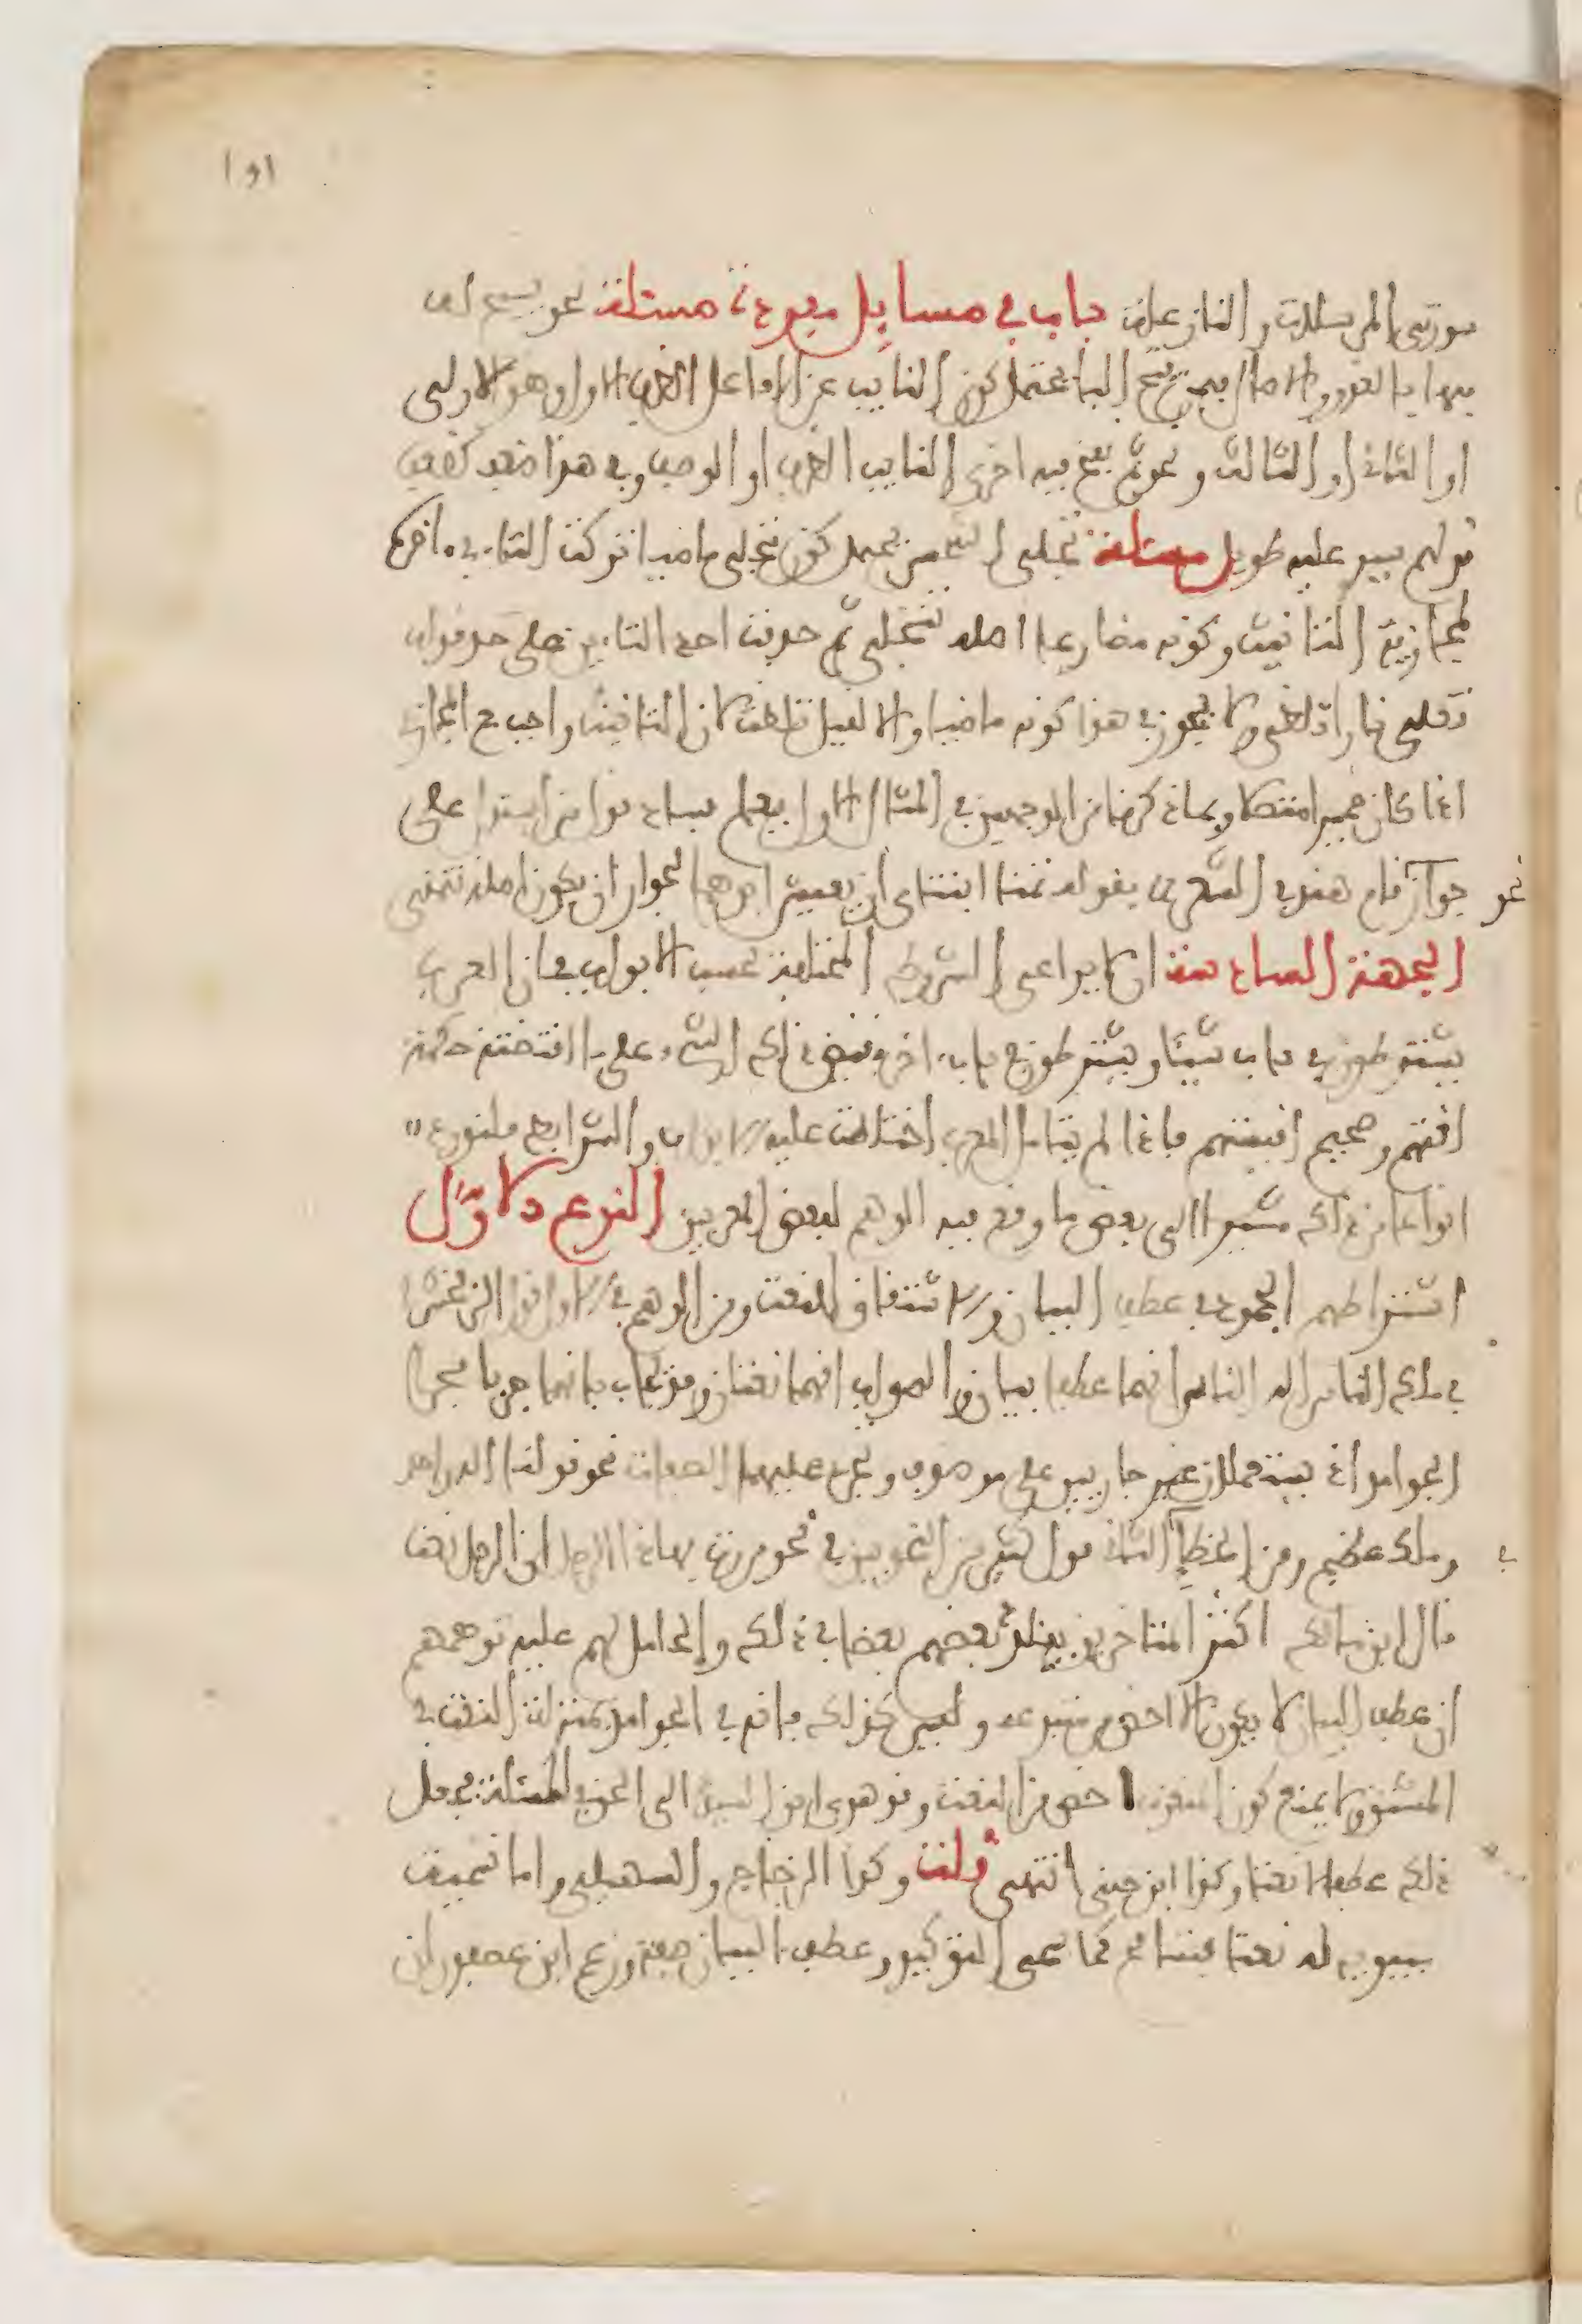 اوا
سورتي المرسلات والنازعات باب في مسايل مفردة مسئلة نحو يسبح له
فيها بالغدو والاصال فيمن فتح الباء يحتمل كون النايب عن الفاعل الظرف الاول وهو الاولى
او الثاني او الثالث ونحو ثم نفخ فيه اخرى النايب الظرف او الوصف وفي هذا ضعف لضعف
قولهم سير عليه طويل مسئلة تجلى الشمس يحتمل كون تجلى ماضيا تركت التاء من اخره
لمجازية التانيث وكونه مضارعا اصله تتجلى ثم حذفت احدى التاءين على حد قوله
تعلى نارا تلظى ولا يجوز في هذا كونه ماضيا والا لقيل تلظت لان التانيث واجب مع المجازي
اذا كان ضميرا متصلا وبما ذكرنا من الوجهين في المثال الاول يعلم فساد قول من استدل على
نحو جواز قام هند في الشعر بقوله تمنى ابنتاي ان يعيش ابوهما لجواز ان يكون اصله تتمنى
الجهة السادسة ان لا يراعى الشروط المختلفة بحسب الابواب فان العرب
يشترطون في باب شيئا ويشترطون في باب اخر نقيض ذلك الشيء على ما اقتضته حكمة
لغتهم وصحيح اقيستهم فاذا لم يتامل المعرب اختلطت عليه الابواب والشرايط فلنورد
انواعا من ذلك مشيرا الى بعض ما وقع فيه الوهم لبعض المعربين النوع الاول
اشتراطهم الجمود في عطف البيان والاشتقاق للنعت ومن الوهم في الاول قول الزمخشري
في ملك الناس اله الناس انهما عطفا بيان والصواب انهما نعتان وقد يجاب بانهما جريا مجرى
الجوامد اذ يستعملان غير جاريين على موصوف وتجري عليهما الصفات نحو قولنا اله واحد
وملك عظيم ومن الخطا في الثاني قول كثير من النحويين في نحو مررت بهذا الرجل ان الرجل نعت
قال ابن مالك اكثر المتاخرين يقلد بعضهم بعضا في ذلك والحامل لهم عليه توهمهم
ان عطف البيان لا يكون الا اخص من متبوعه وليس كذلك فانه في الجوامد بمنزلة النعت في
المشتق ولا يمنع كون المنعوت اخص من النعت وقد هدي ابن السيد الى الحق في المسئلة فجعل
ذلك عطفا لا نعتا وكذا ابن جني انتهى قلت وكذا الزجاج والسهيلي واما تسمية
سيبويه له نعتا فتسامح كما سمى التوكيد وعطف البيان صفة وزعم ابن عصفور ان